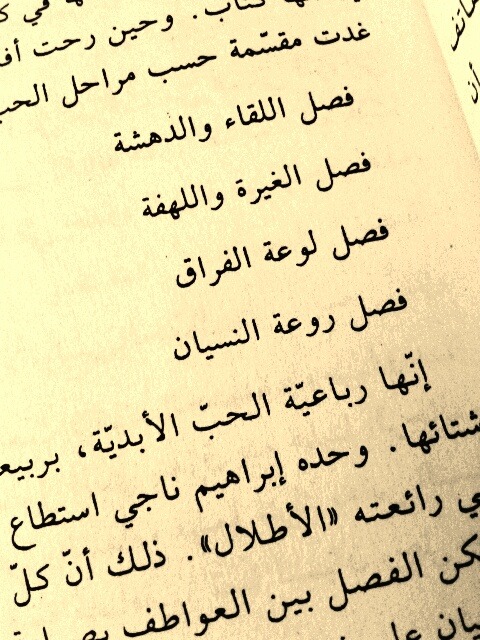 كتاب. وحين رحت
غدت مقسّمة حسب مراحل الحب
فصل اللقاء والدهشة
فصل الغيرة واللهفة
فصل لوعة الفراق
فصل روعة النسيان
إنّها رباعيّة الحبّ الأبديّة، بربيع
شتائها. وحده إبراهيم ناجي استطاع
رائعته «الأطلال». ذلك أنّ كلّ
الفصل بين العواطف
أن